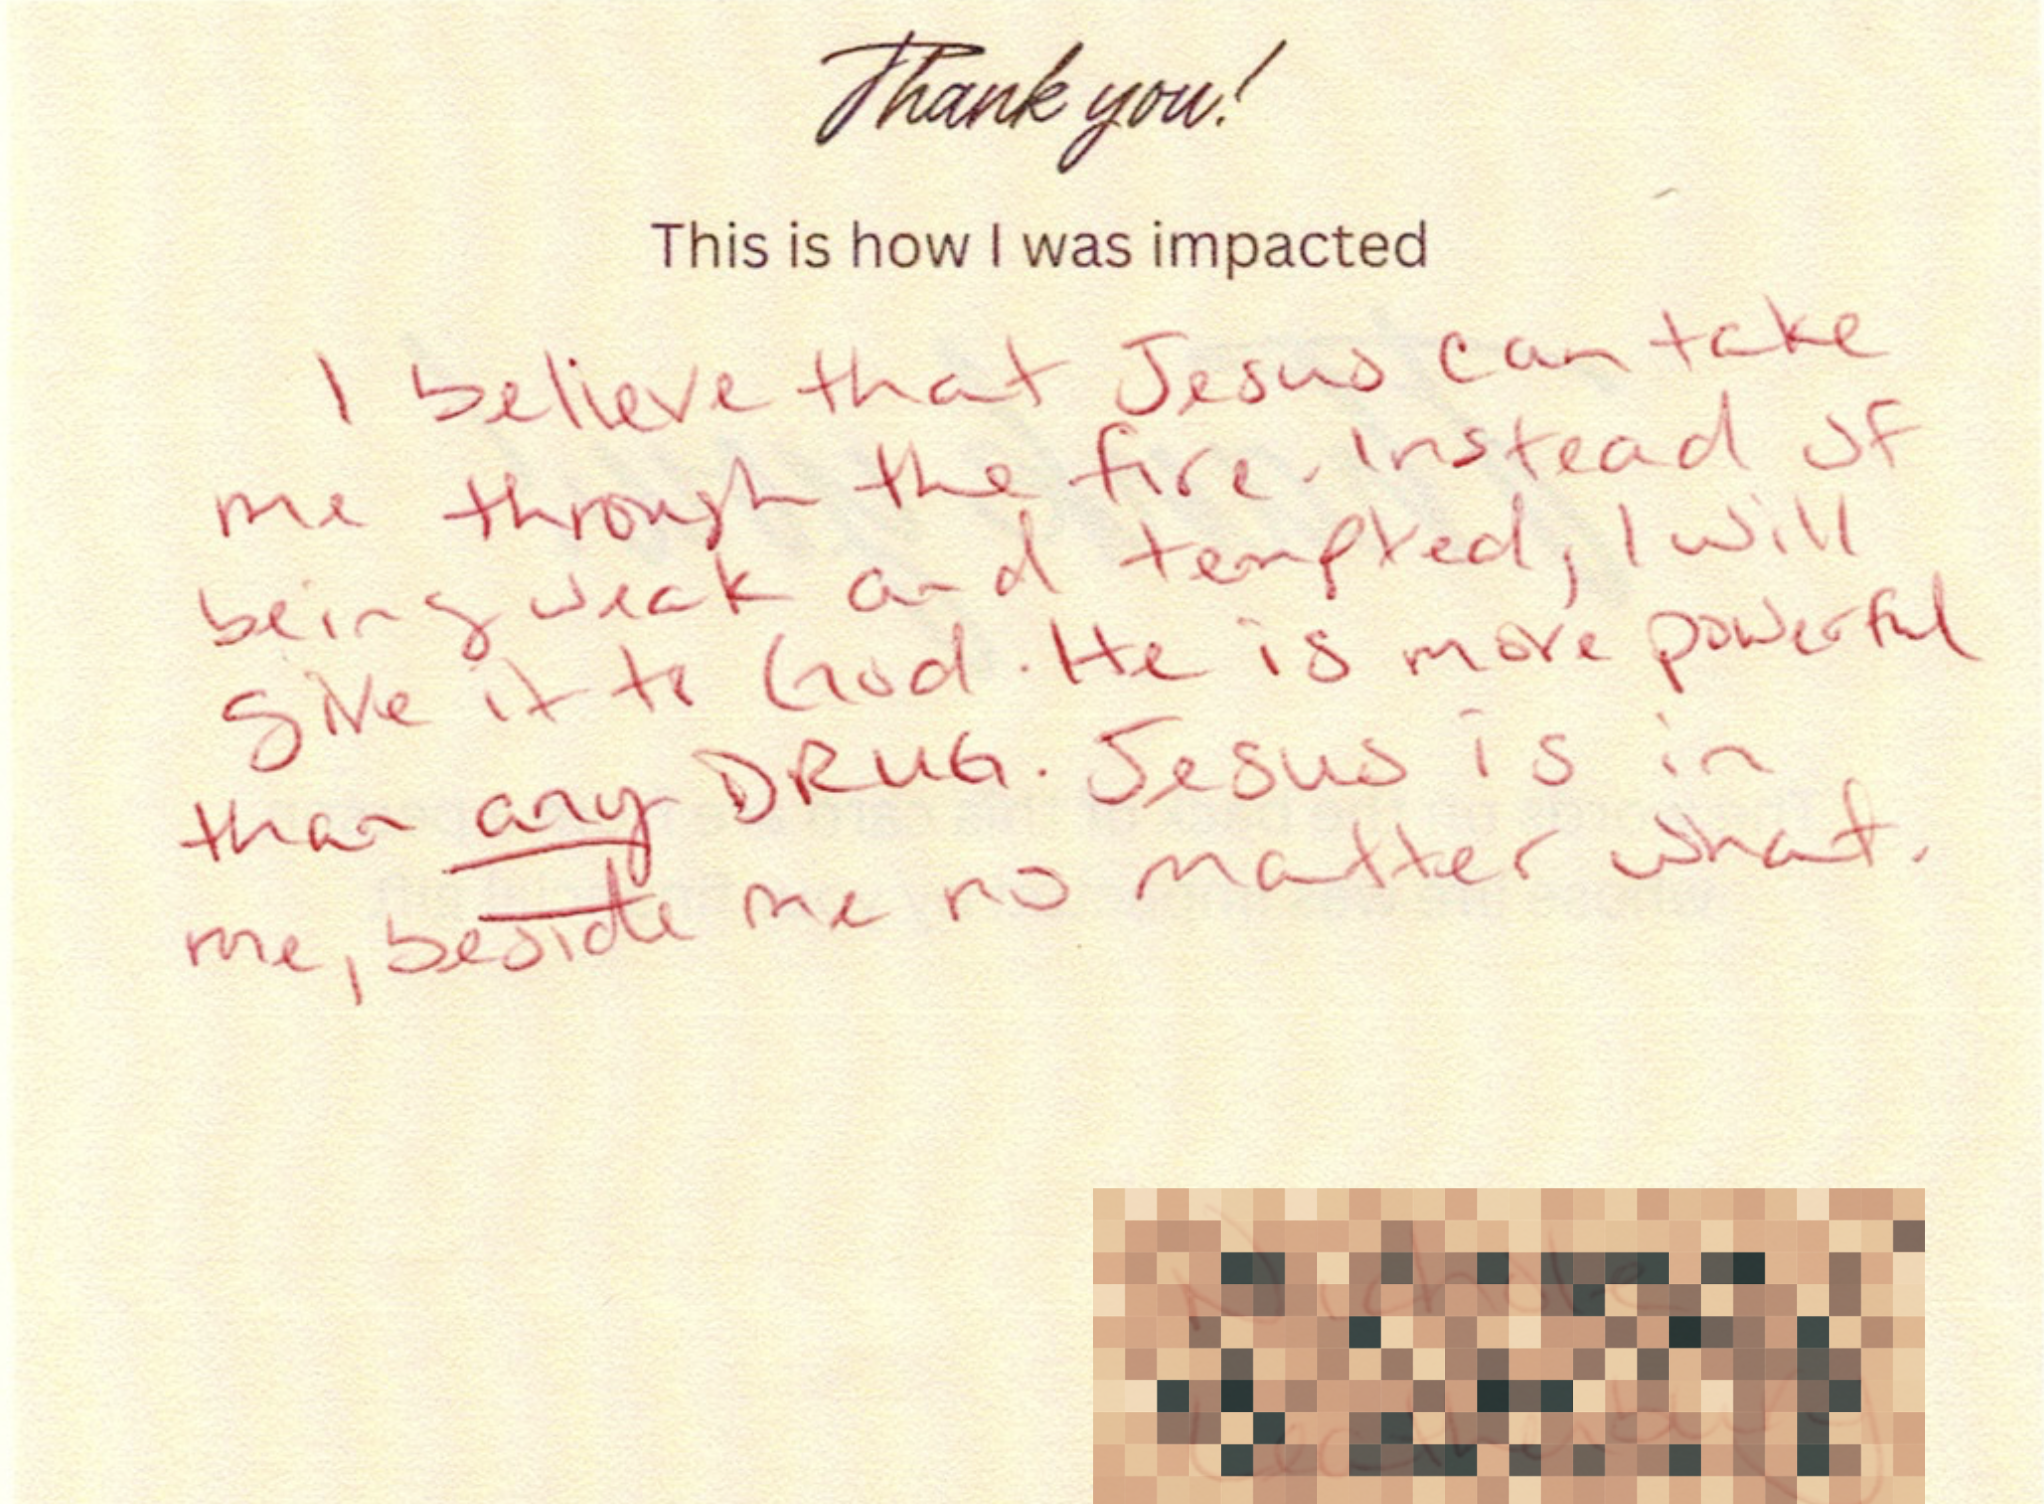 Thank you!
This is how I was impacted
I believe that Jesus can take
me through the fire. Instead of
being weak and tempted, I will
give it to God. He is more powerful
than any DRUG. Jesus is in
me, beside me no matter what.